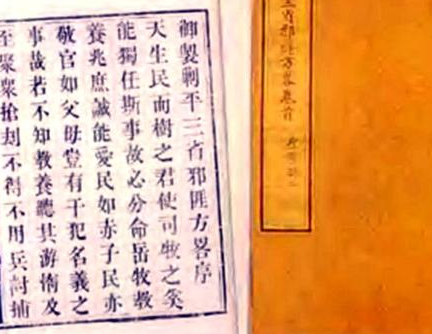 三省邪匪方畧卷首
御製剿平三省邪匪方畧序
天生民而樹之君使司牧之奚
能獨任斯事故必分命岳牧教
養兆庶誠能愛民如赤子民亦
敬官如父母豈有干犯名義之
事哉若不知教養聽其游惰及
至聚衆搶刼不得不用兵討捕